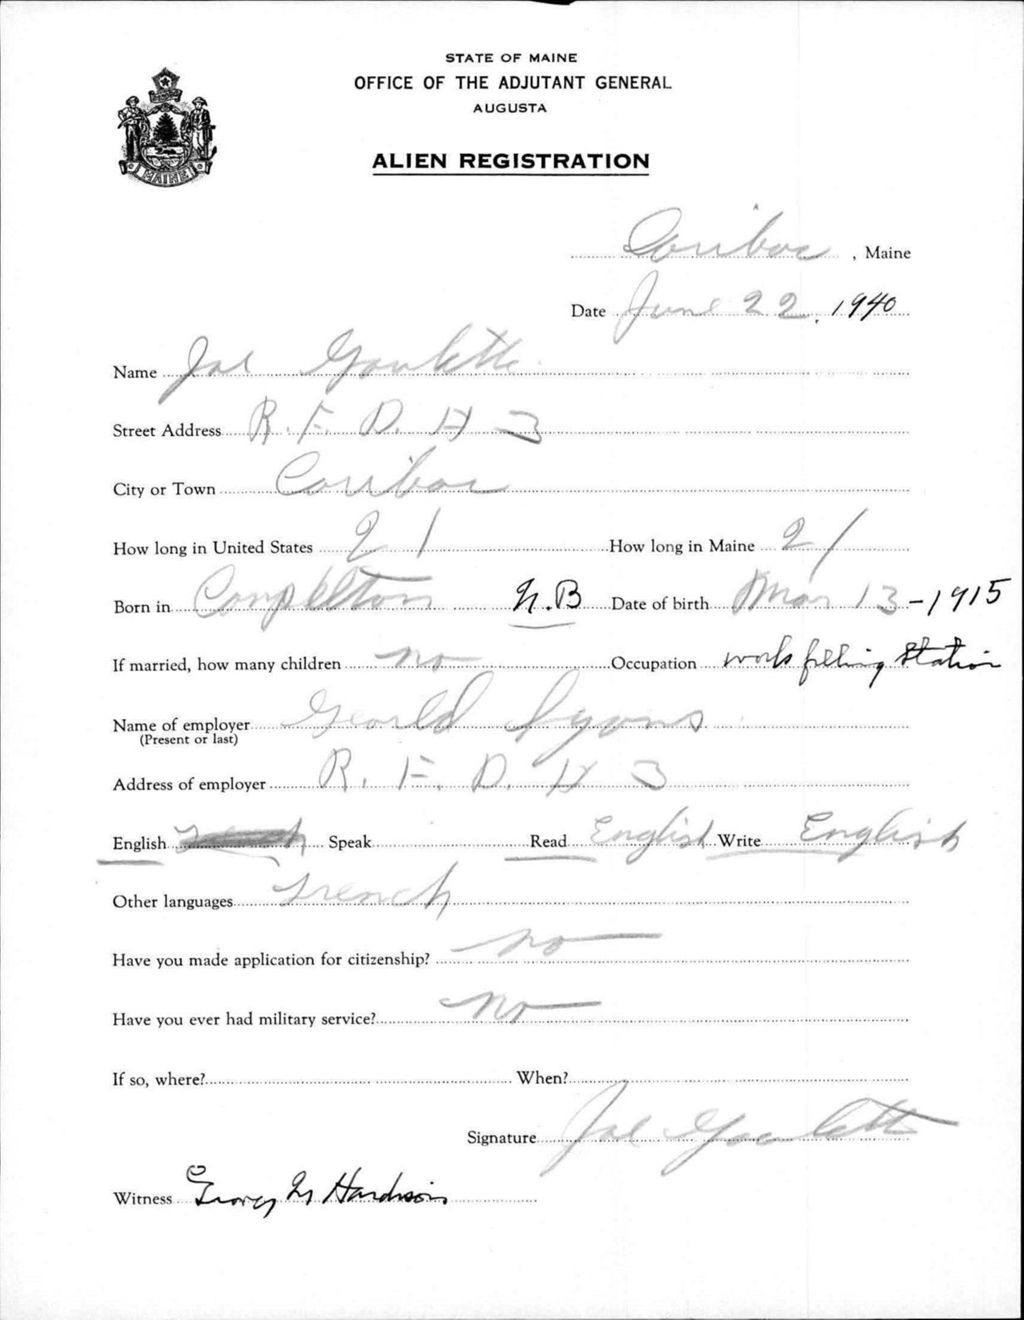 STATE OF MAINE
OFFICE OF THE ADJUTANT GENERAL
AUGUSTA
ALIEN REGISTRATION
MAINE
Caribou, Maine
Date June 22, 1940
Name Joe Goulette
Street Address R. F. D. # 3
City or Town Caribou
How long in United States 21 How long in Maine 21
Born in Campellton N.B Date of birth Mar 13-1915
If married, how many children no Occupation work filling Station
Name of employer Georld Lyons
(Present or last)
Address of employer R. F. D. # 3
English Speak Read English Write English
Other languages French
Have you made application for citizenship? no
Have you ever had military service? no
If so, where? When?
Signature Joe Goulette
Witness George M Hardison